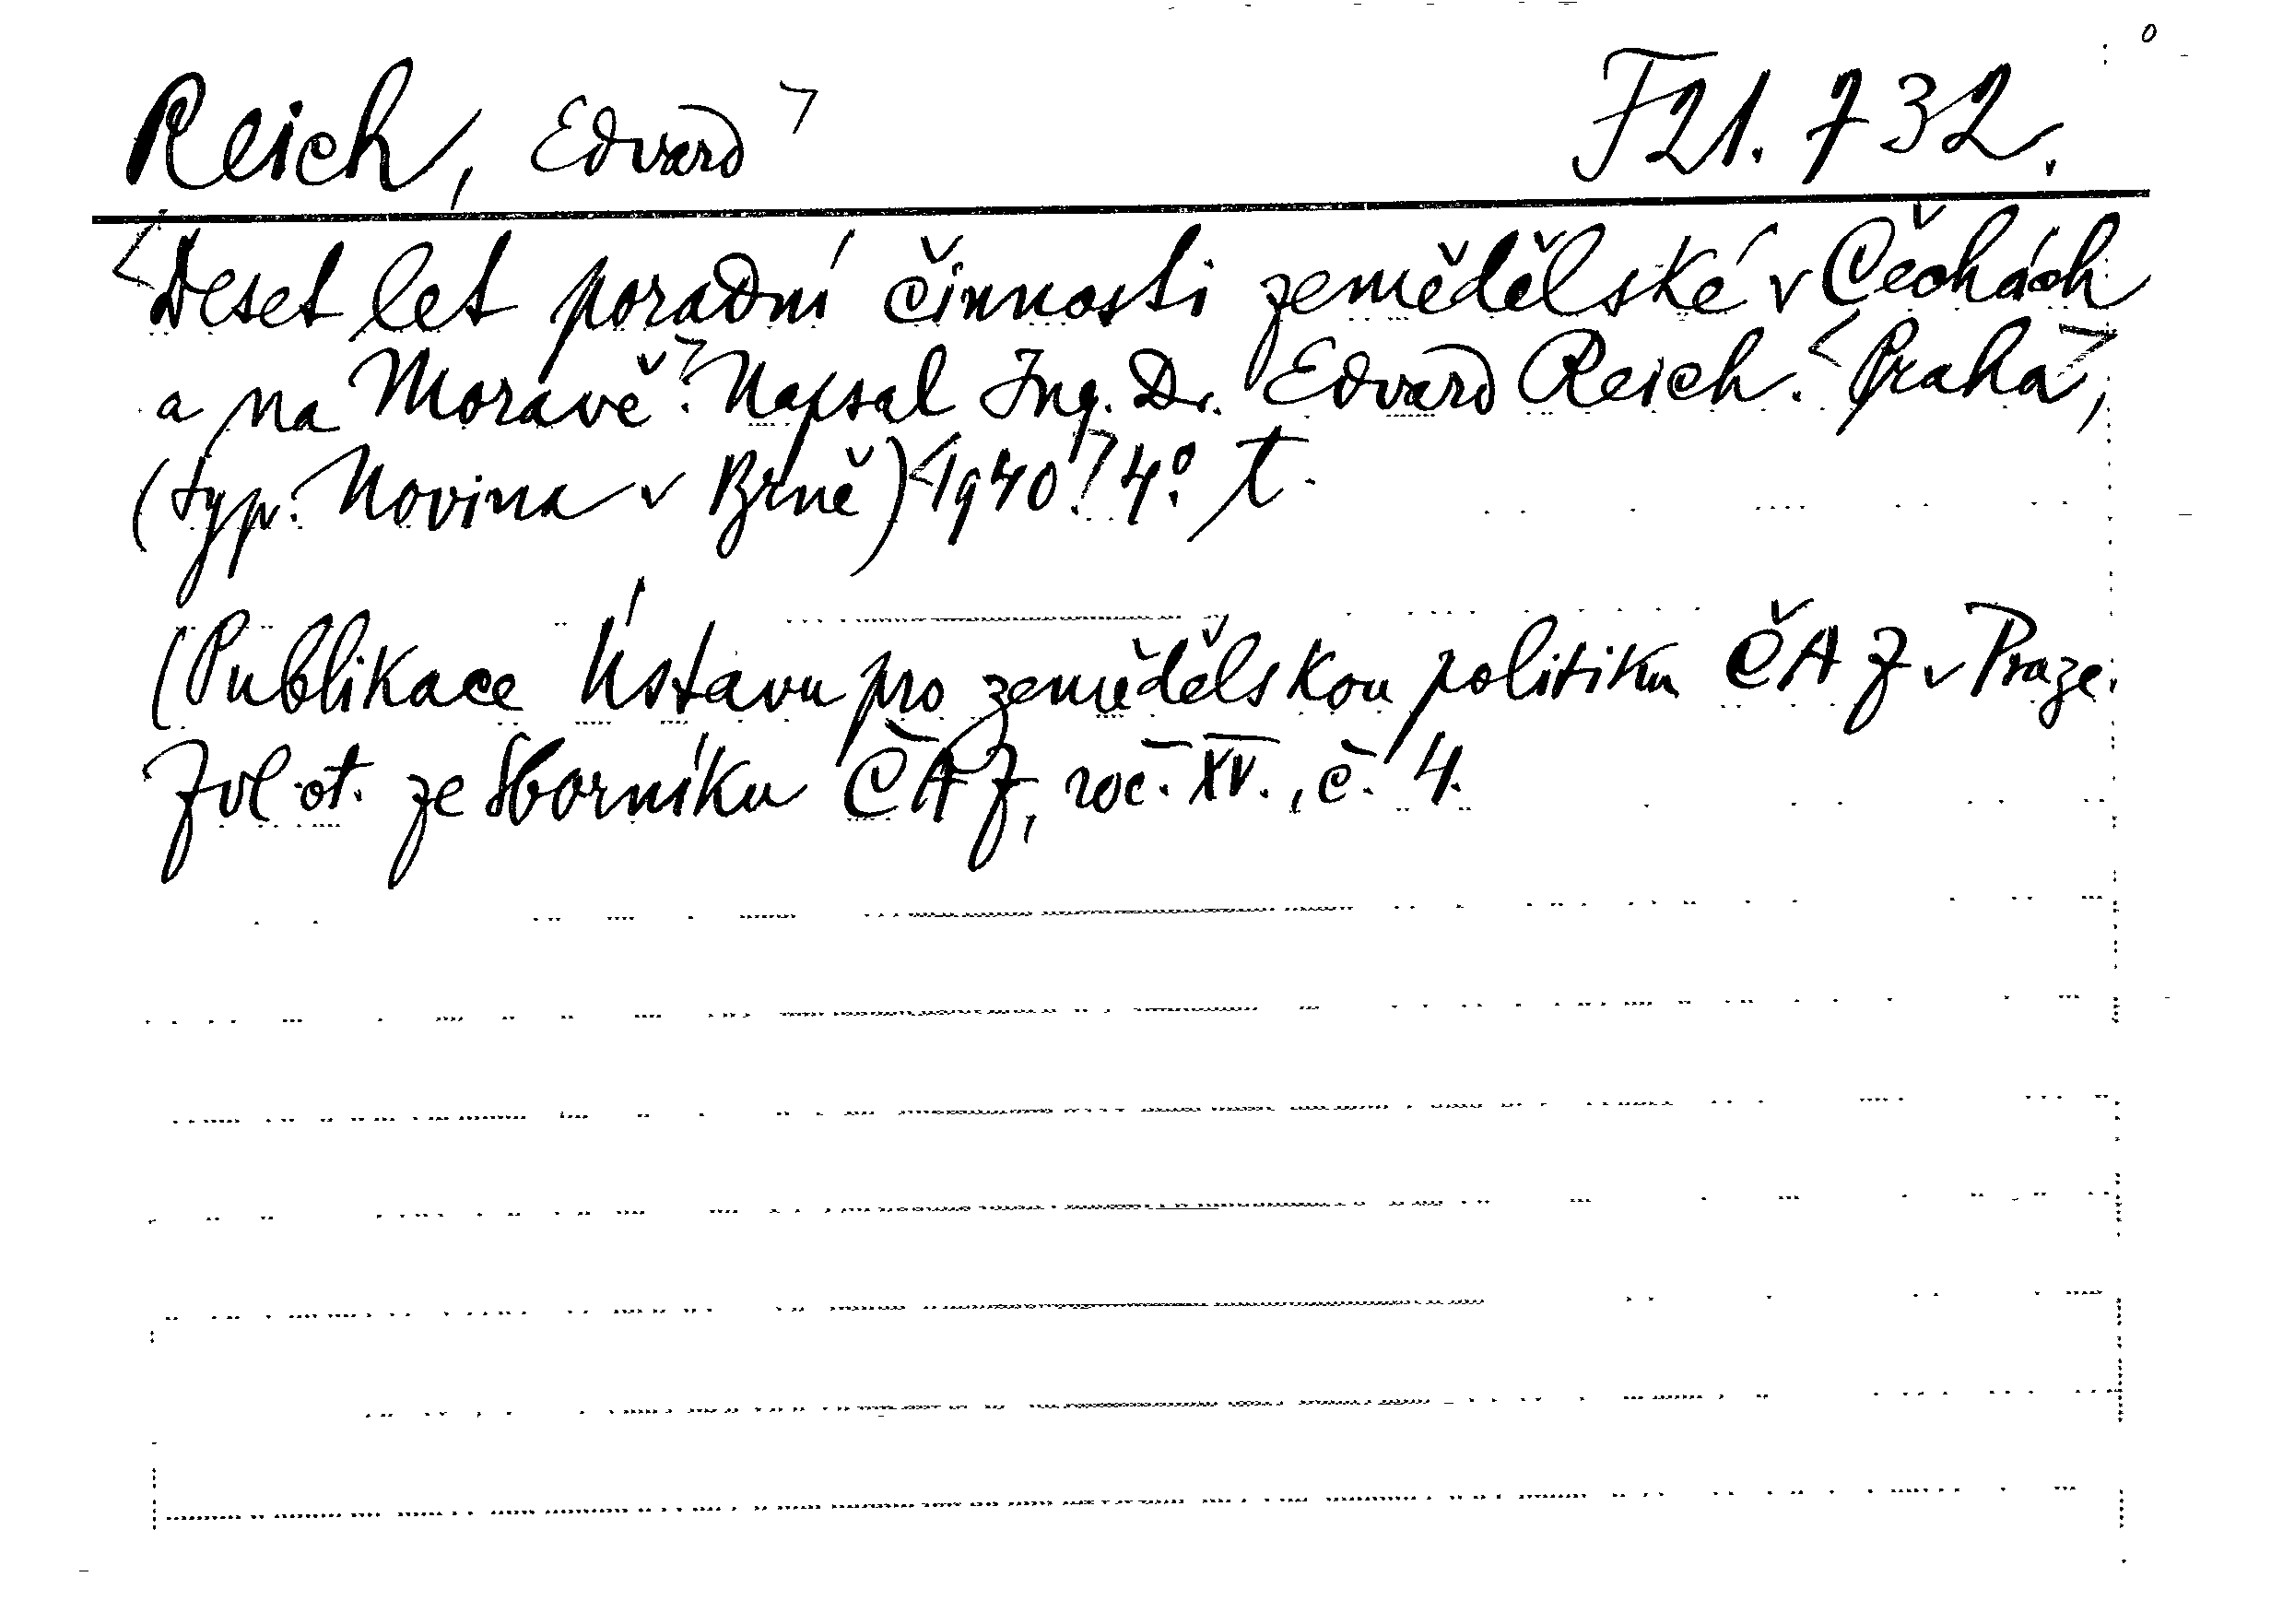 Reich, Edvard> F 21.732.
<Deset let poradní činnosti zemědělské v Čechách
a na Moravě>. Napsal Ing. Dr. Edvard Reich. <Praha>,
(typ. Novina v Brně) <1940.> 4°. t.
(Publikace Ústavu pro zemědělskou politiku ČAZ v Praze.
Zvl. ot. ze Sborníku ČAZ, roč. XV., č. 4.